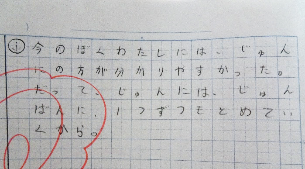 ① 今のぼくわたしには、じゅん
にの方が分かりやすかった。
だって、じゅんには、じゅん
ばんに、1つずつもとめてい
くから。